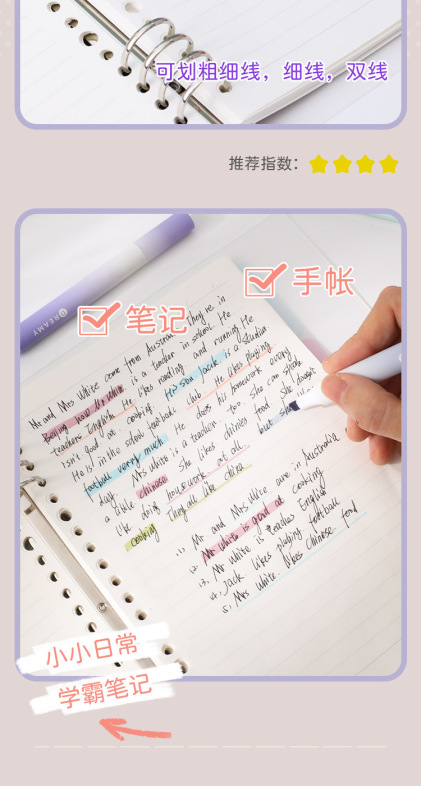 可划粗细线，细线，双线
推荐指数：
手帐
笔记
DREAMY
Mr and Mrs White come from Australia. They're in
Beijing now. Mr White is a teacher in school. He
teaches English. He likes reading and running. He
isn't good at cooking. His son Jack is a student
He is in the school football club. He likes playing
football very much. He does his homework every
day. Mrs White is a teacher, too. She can speak
a little chinese. She likes chinies food. She doesn't
like doing housework at all.
cooking They all like china
Mr and Mrs white are in Australia
Mr white is good at cooking
Mr white is teacher English
Jack likes playing football
Mrs white likes chinese food
小小日常
学霸笔记